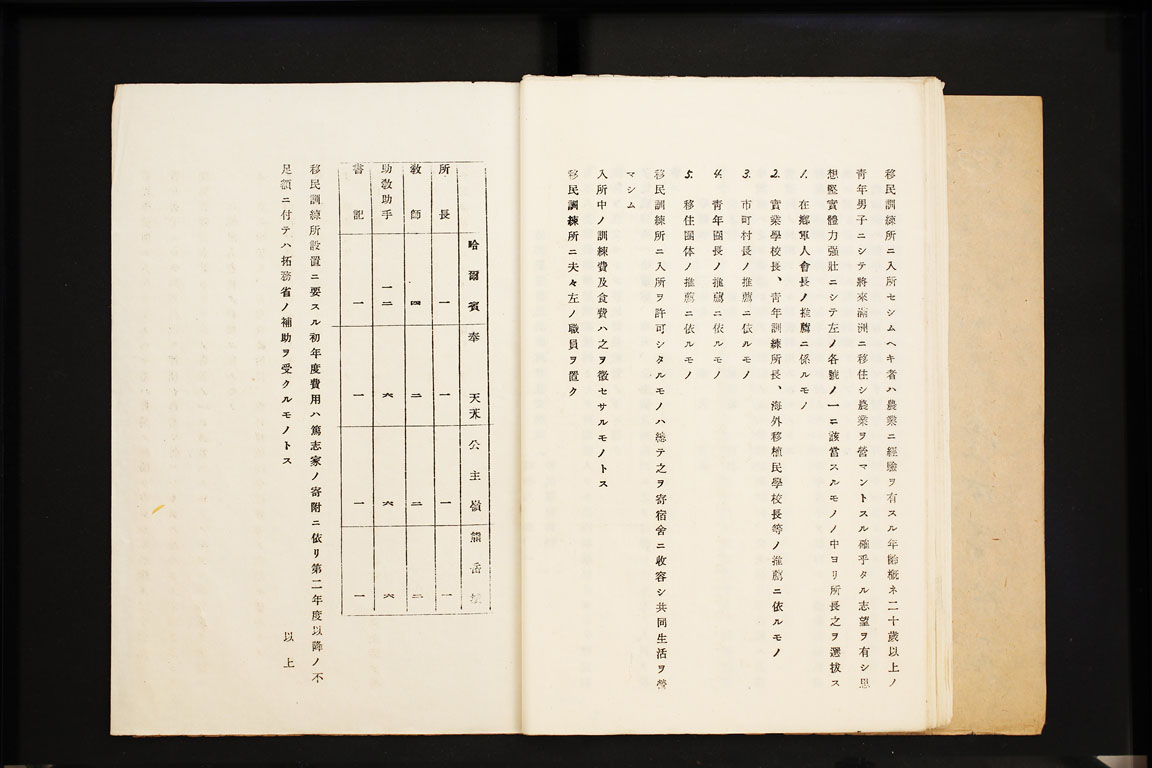 移民訓練所ニ入所セシムヘキ者ハ農業ニ經驗ヲ有スル年齡槪ネ二十歲以上ノ
靑年男子ニシテ將來滿洲ニ移住シ農業ヲ營マントスル確乎タル志望ヲ有シ思
想堅實體力强壯ニシテ左ノ各號ノ一ニ該當スルモノノ中ヨリ所長之ヲ選拔ス
1. 在鄕軍人會長ノ推薦ニ係ルモノ
2. 實業學校長、靑年訓練所長、海外移植民學校長等ノ推薦ニ依ルモノ
3. 市町村長ノ推薦ニ依ルモノ
4. 靑年團長ノ推薦ニ依ルモノ
5. 移住團体ノ推薦ニ依ルモノ
移民訓練所ニ入所ヲ許可シタルモノハ總テ之ヲ寄宿舍ニ收容シ共同生活ヲ營
マシム
入所中ノ訓練費及食費ハ之ヲ徵セサルモノトス
移民訓練所ニ夫々左ノ職員ヲ置ク
哈爾賓 奉天 公主嶺 熊岳
所長 一 一 一 一
敎師 四 二 二 二
助敎助手 一二 六 六 六
書記 一 一 一 一
移民訓練所設置ニ要スル初年度費用ハ篤志家ノ寄附ニ依リ第二年度以降ノ不
足額ニ付テハ拓務省ノ補助ヲ受クルモノトス
以上